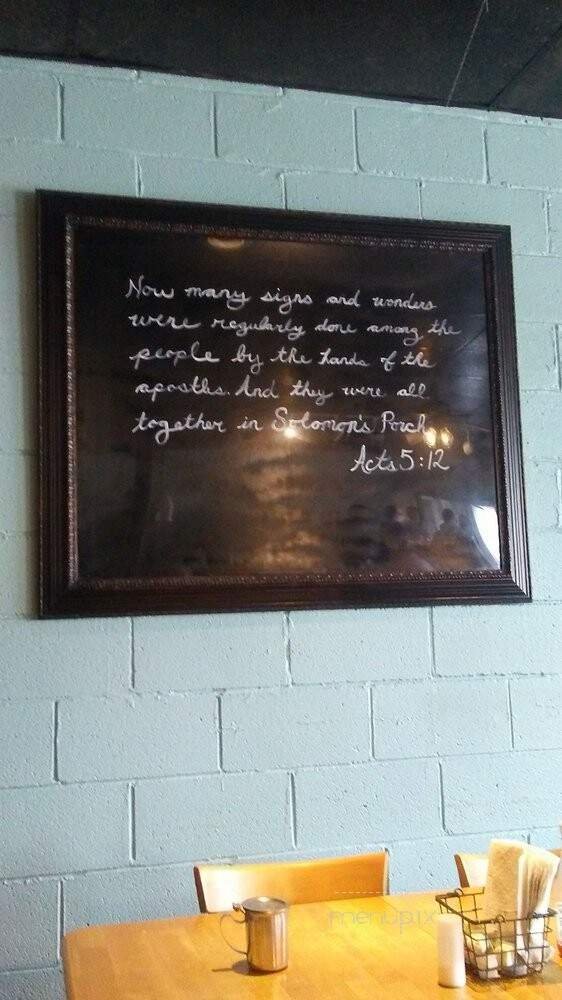 Now many signs and wonders
were regularly done among the
people by the hands of the
apostles. And they were all
together in Solomon's Porch
Acts 5:12
menupix